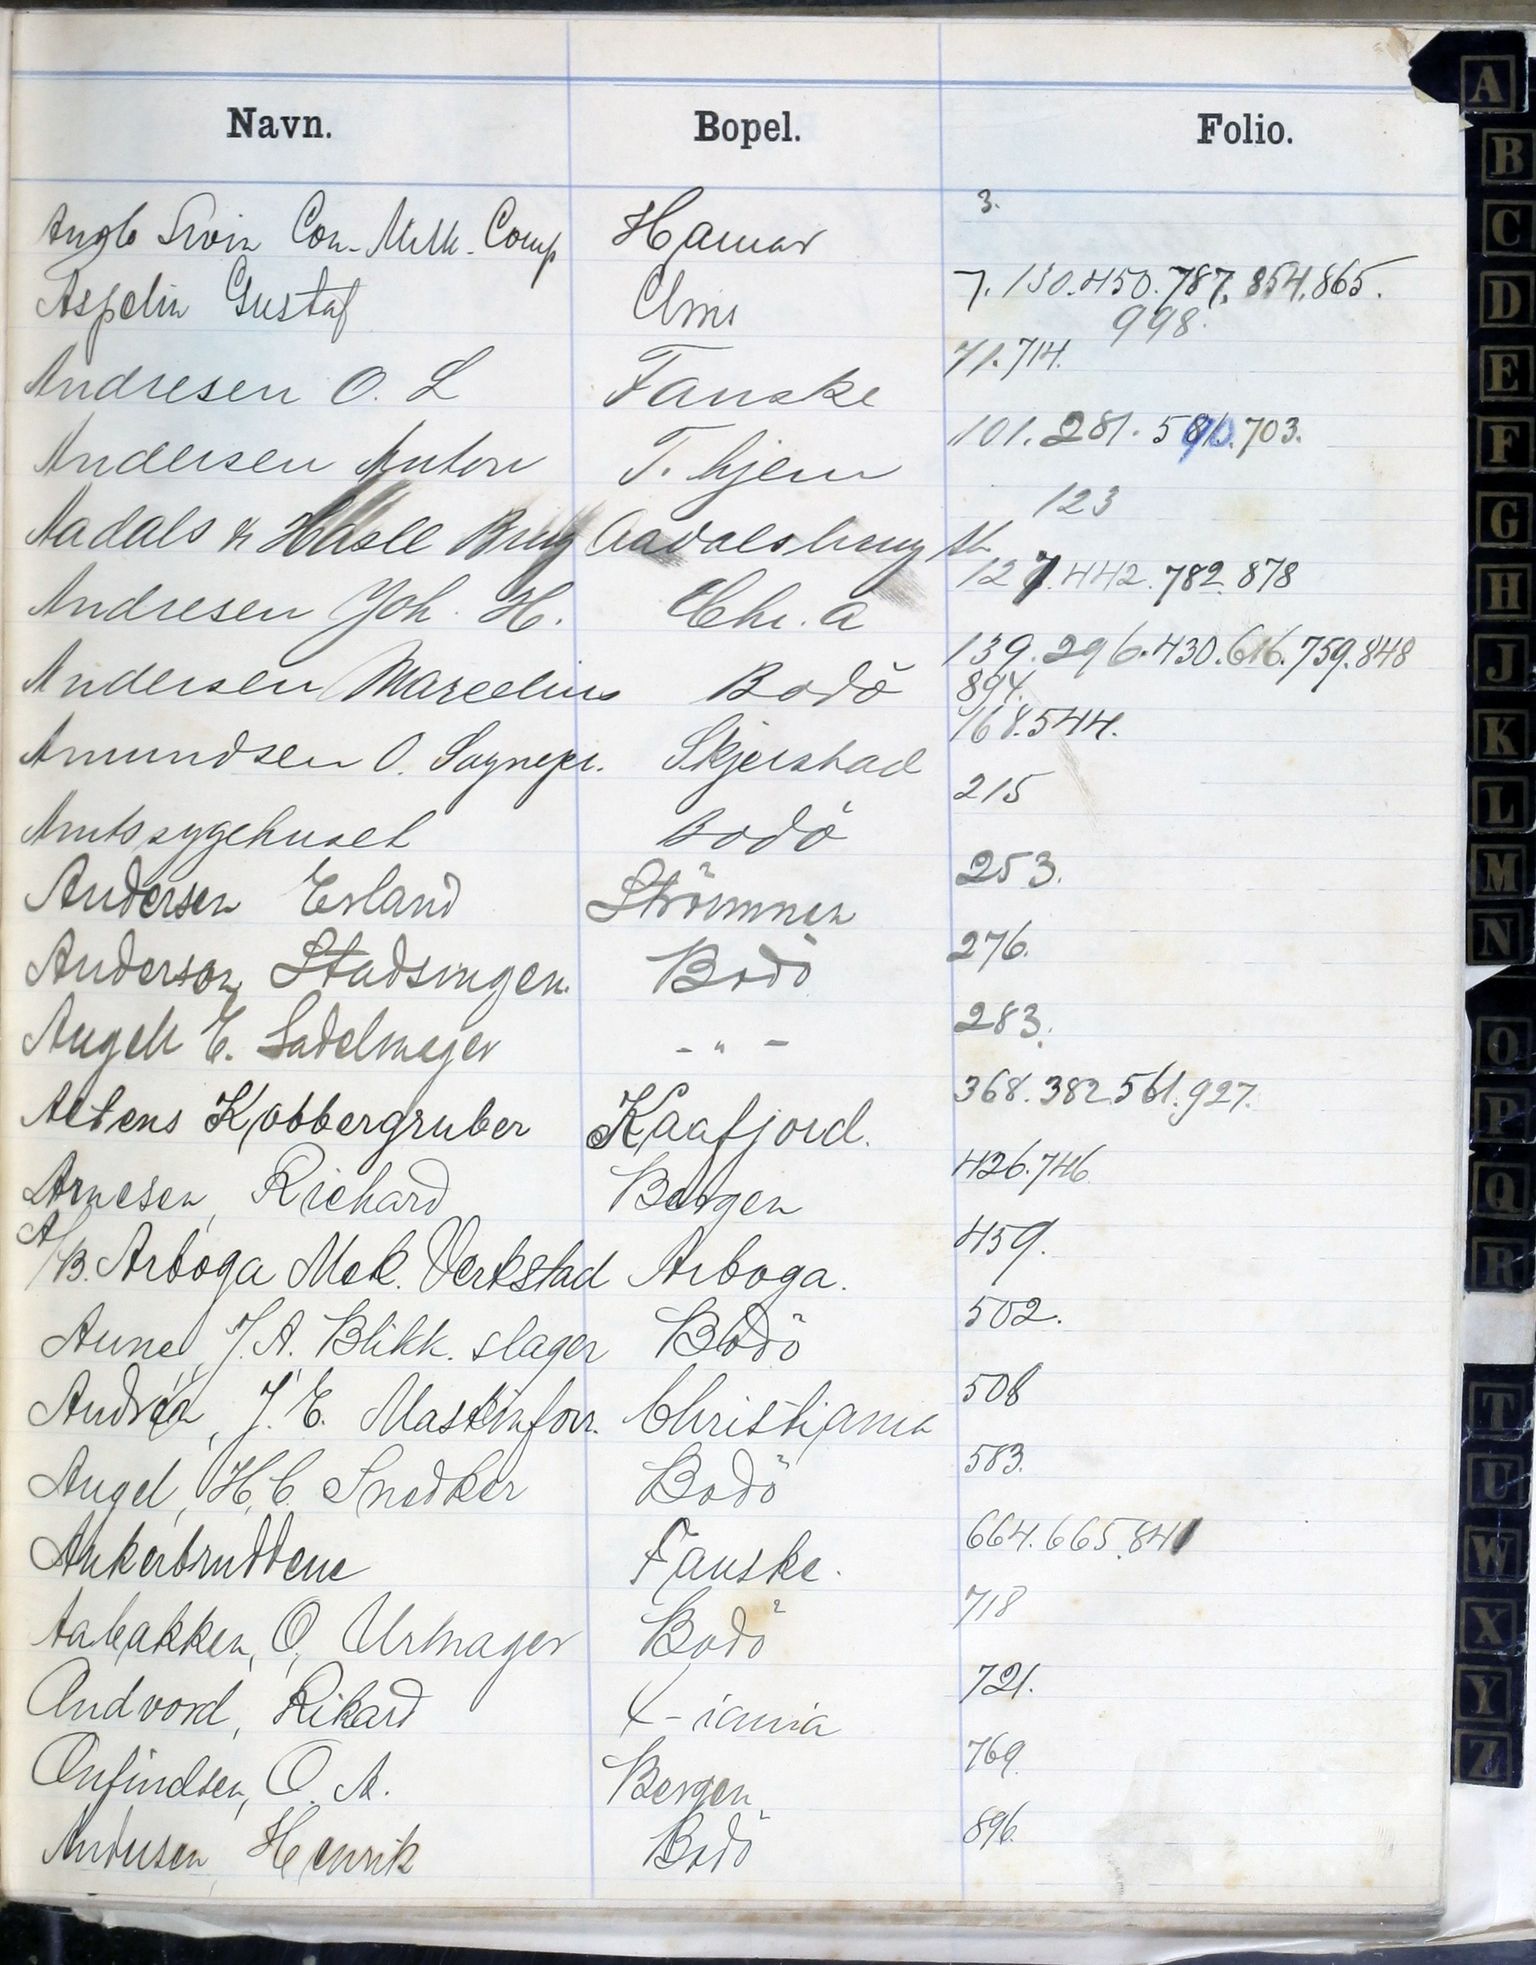 Navn. Bopel. Folio.
Anglo Svin Con. Milk. Comp Hamar 3.
Aspelin Gustaf Chria 7. 130. 450. 787. 854. 865.
998.
Andresen O. L Fauske 71. 714.
Andersen Anton T. hjem 101. 281. 590. 703.
Aadals & Hasle Brug Aadalsbrug St. 123
Andresen Joh. H. Chr. a 127. 442. 782. 878
Andersen Marcelius Bodö 139. 296. 430. 616. 759. 848
894.
Amundsen O. Sognepr. Skjerstad 168. 544.
Amtssygehuset Bodö 215
Andersen Erland Strömmen 253.
Anderson, Stadsingen. Bodö 276.
Angell E. Sadelmager - " - 283.
Altens Kobbergruber Kaafjord. 368. 382. 561. 927.
Arnesen, Richard Bergen 426. 746
A/B. Arboga Mek. Verkstad Arboga. 459.
Aune, J. A. Blikk. slager Bodö 502.
Andrén, J. E. Maskinforr. Christiania 508
Angel, H. C. Snedker Bodö 583.
Ankerbruddene Fauske. 664. 665. 841
Aabakken, O, Urmager Bodö 718
Andvord, Rikard X-iania 721.
Onfindsen, O. A. Bergen 769.
Andersen, Henrik Bodö 896.
A
B
C
D
E
F
G
H
J
K
L
M
N
O
P
Q
R
T
U
W
X
Y
Z